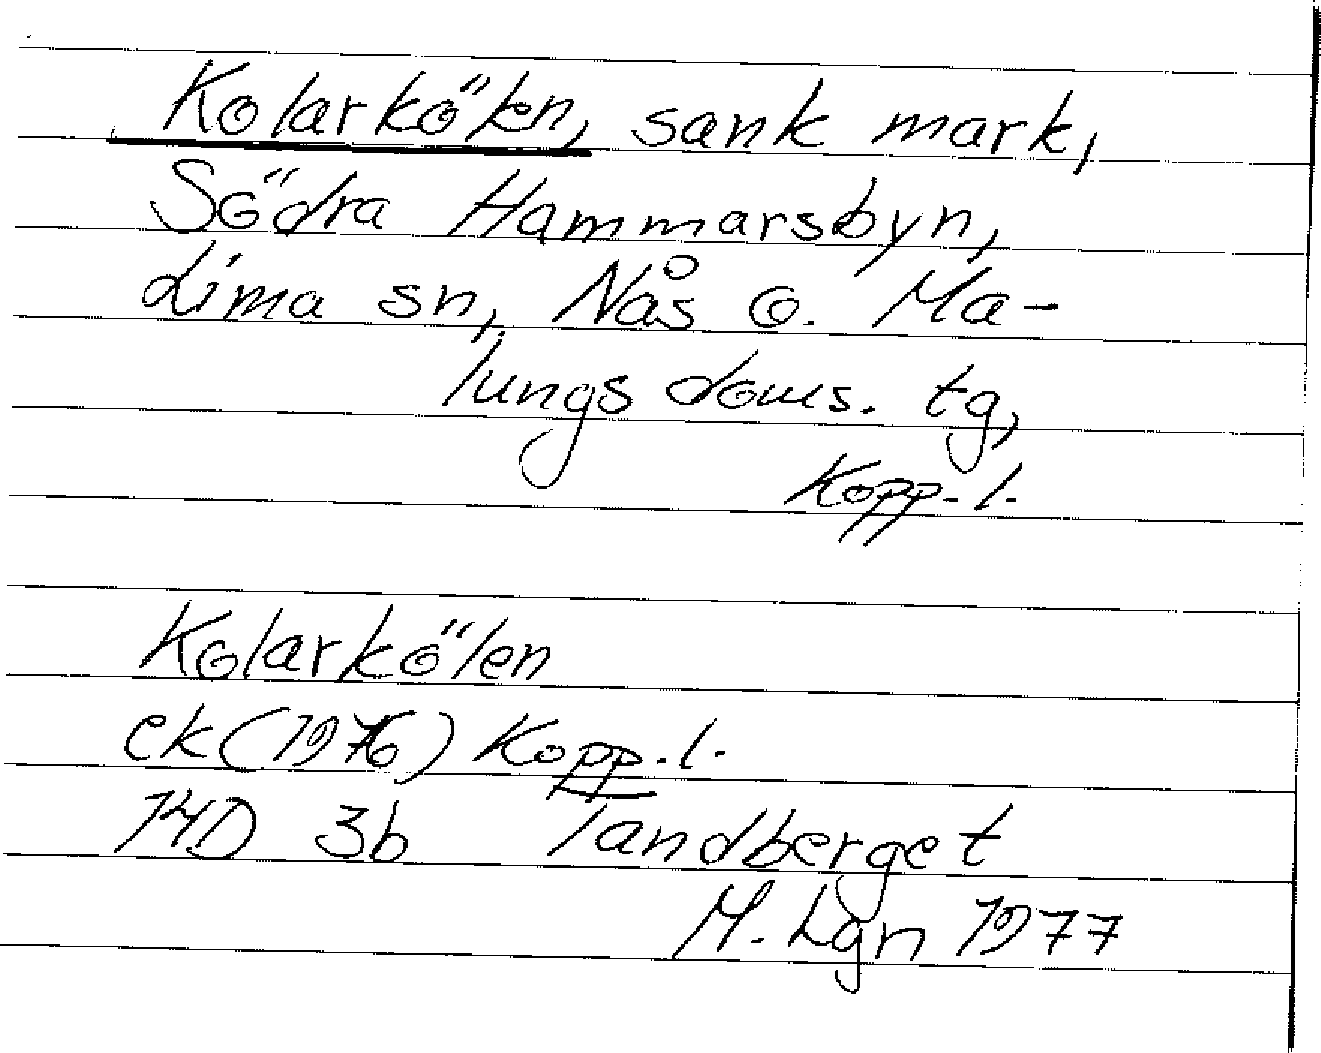 Kolarkölen, sank mark,
Södra Hammarsbyn,
Lima sn, Nås o. Ma-
lungs doms. tg,
Kopp. l.
Kolarkölen
ek (1976) Kopp. l.
14D 3b Tandberget
M. Lgn 1977